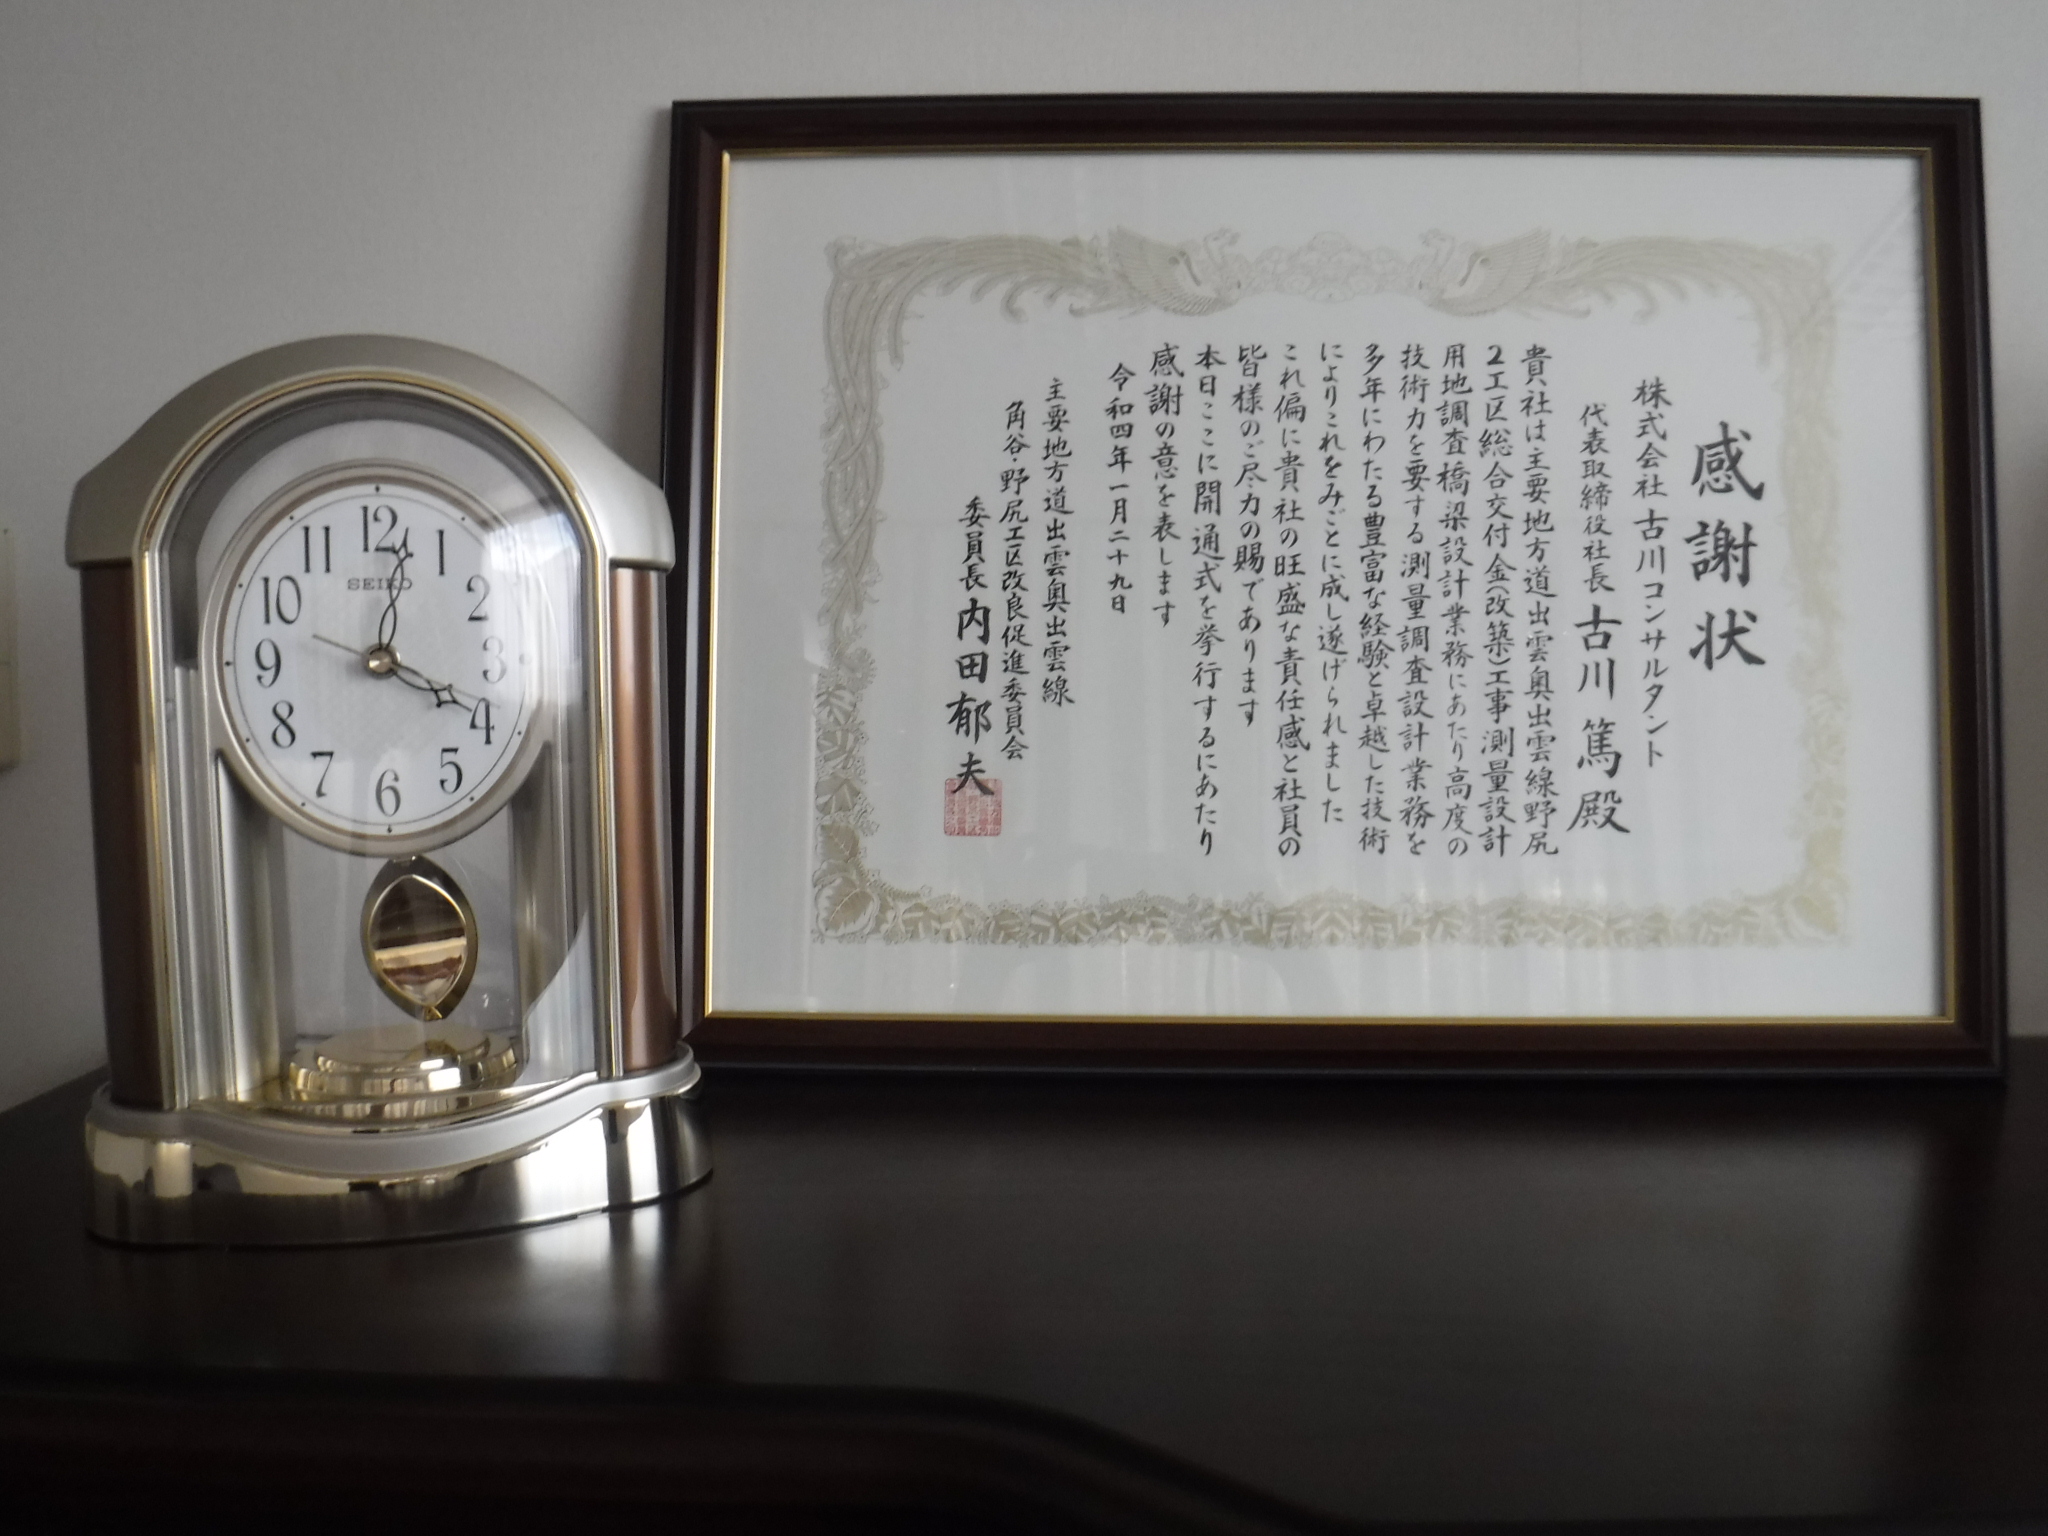 感謝状
株式会社古川コンサルタント
代表取締役社長 古川 篤 殿
貴社は主要地方道出雲奥出雲線野尻
2工区総合交付金(改築)工事測量設計
用地調査橋梁設計業務にあたり高度の
技術力を要する測量調査設計業務を
多年にわたる豊富な経験と卓越した技術
によりこれをみごとに成し遂げられました
これ偏に貴社の旺盛な責任感と社員の
皆様のご尽力の賜であります
本日ここに開通式を挙行するにあたり
感謝の意を表します
令和四年一月二十九日
主要地方道出雲奥出雲線
角谷・野尻工区改良促進委員会
委員長 内田郁夫
SEIKO
12
1
2
3
4
5
6
7
8
9
10
11